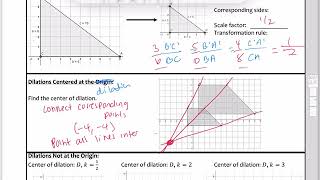 Corresponding sides:
Scale factor: 1/2
Transformation rule:
3 B'C' 5 B'A' 4 C'A' = 1
6 BC 10 BA 8 CA 2
Dilations Centered at the Origin:
dilation
Find the center of dilation.
connect corresponding
points
(-4,-4)
Point all lines inter
Dilations Not at the Origin:
Center of dilation: D, k = 1/2
Center of dilation: D, k = 2
Center of dilation: D, k = 3